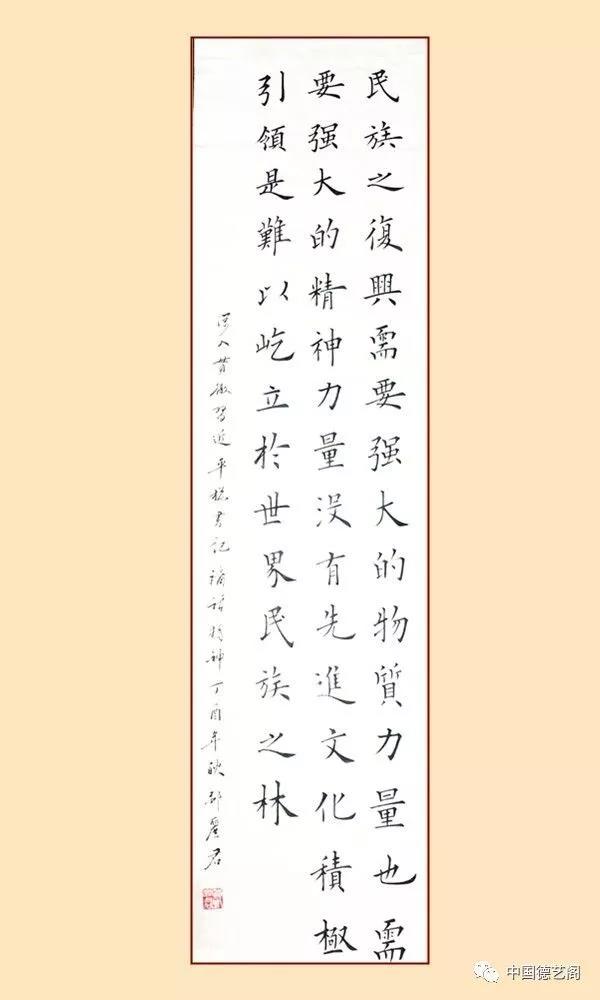 民族之復興需要强大的物質力量也需
要强大的精神力量没有先進文化積極
引領是難以屹立於世界民族之林
習近平總書記講話精神丁酉年
中国德艺阁